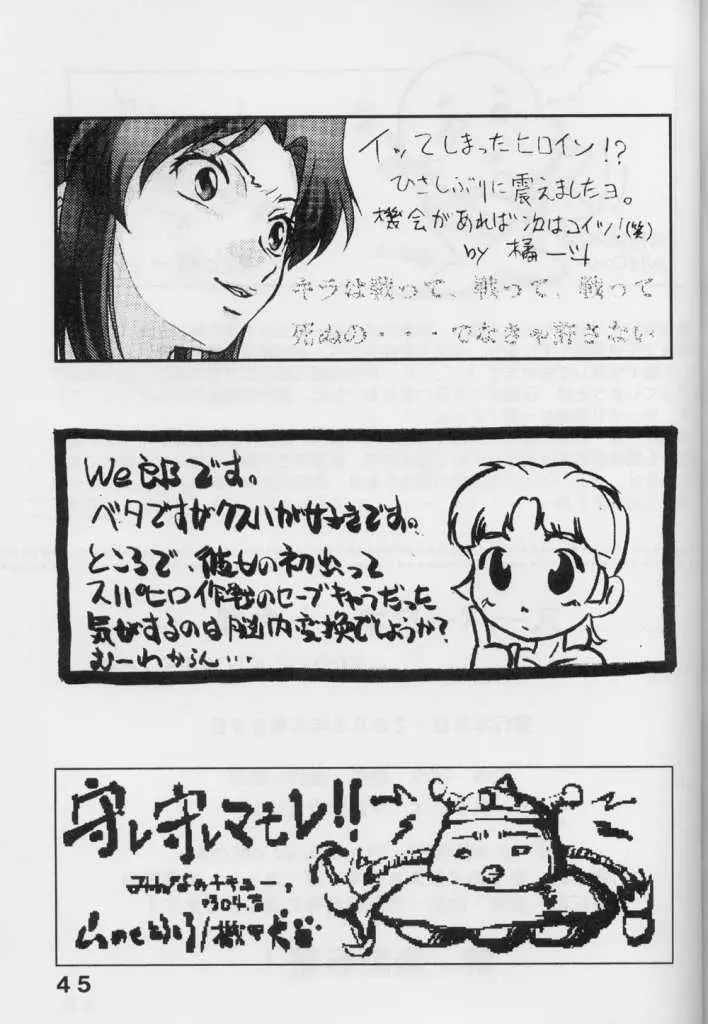 イッてしまったヒロイン!?
ひさしぶりに震えましたヨ。
機会があれば次はコイツ!(笑)
by 橘一斗
キラは戦って、戦って、戦って
死ぬの・・・でなきゃ許さない
We郎です。
ベタですがクスハが好きです。
ところで、彼女の初出って
スパヒロ作戦のセーブキャラだった
気がするのは脳内変換でしょうか?
むーわからん…
守レ守レマモレ!!
みんなのチキュー。
'04.春
45